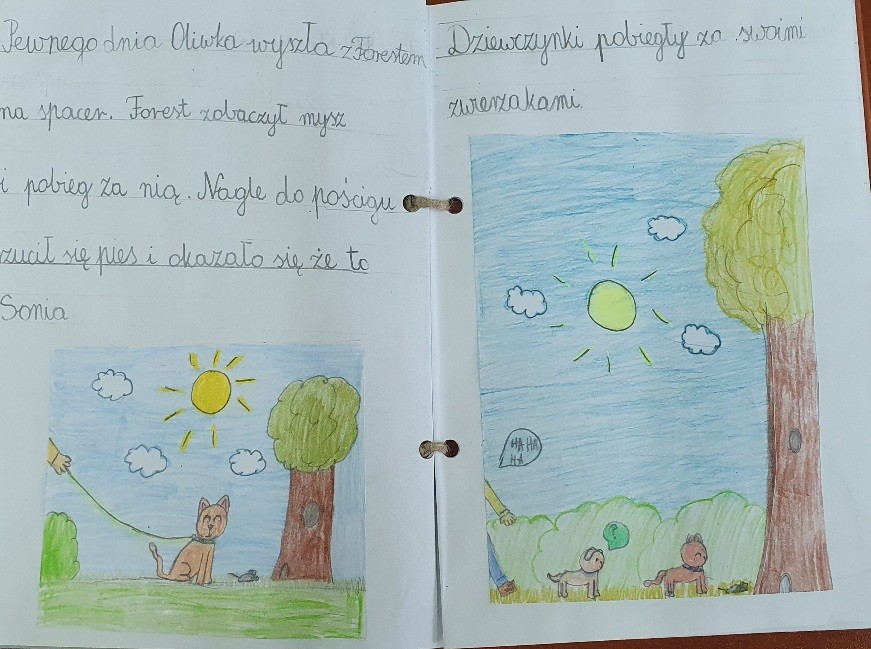 Pewnego dnia Oliwka wyszła z Forestem
na spacer. Forest zobaczył mysz
i pobieg za nią. Nagle do pościgu
rzucił się pies i okazało się że to
Sonia
Dziewczynki pobiegły za swoimi
zwierzakami.
HA HA
HA
?